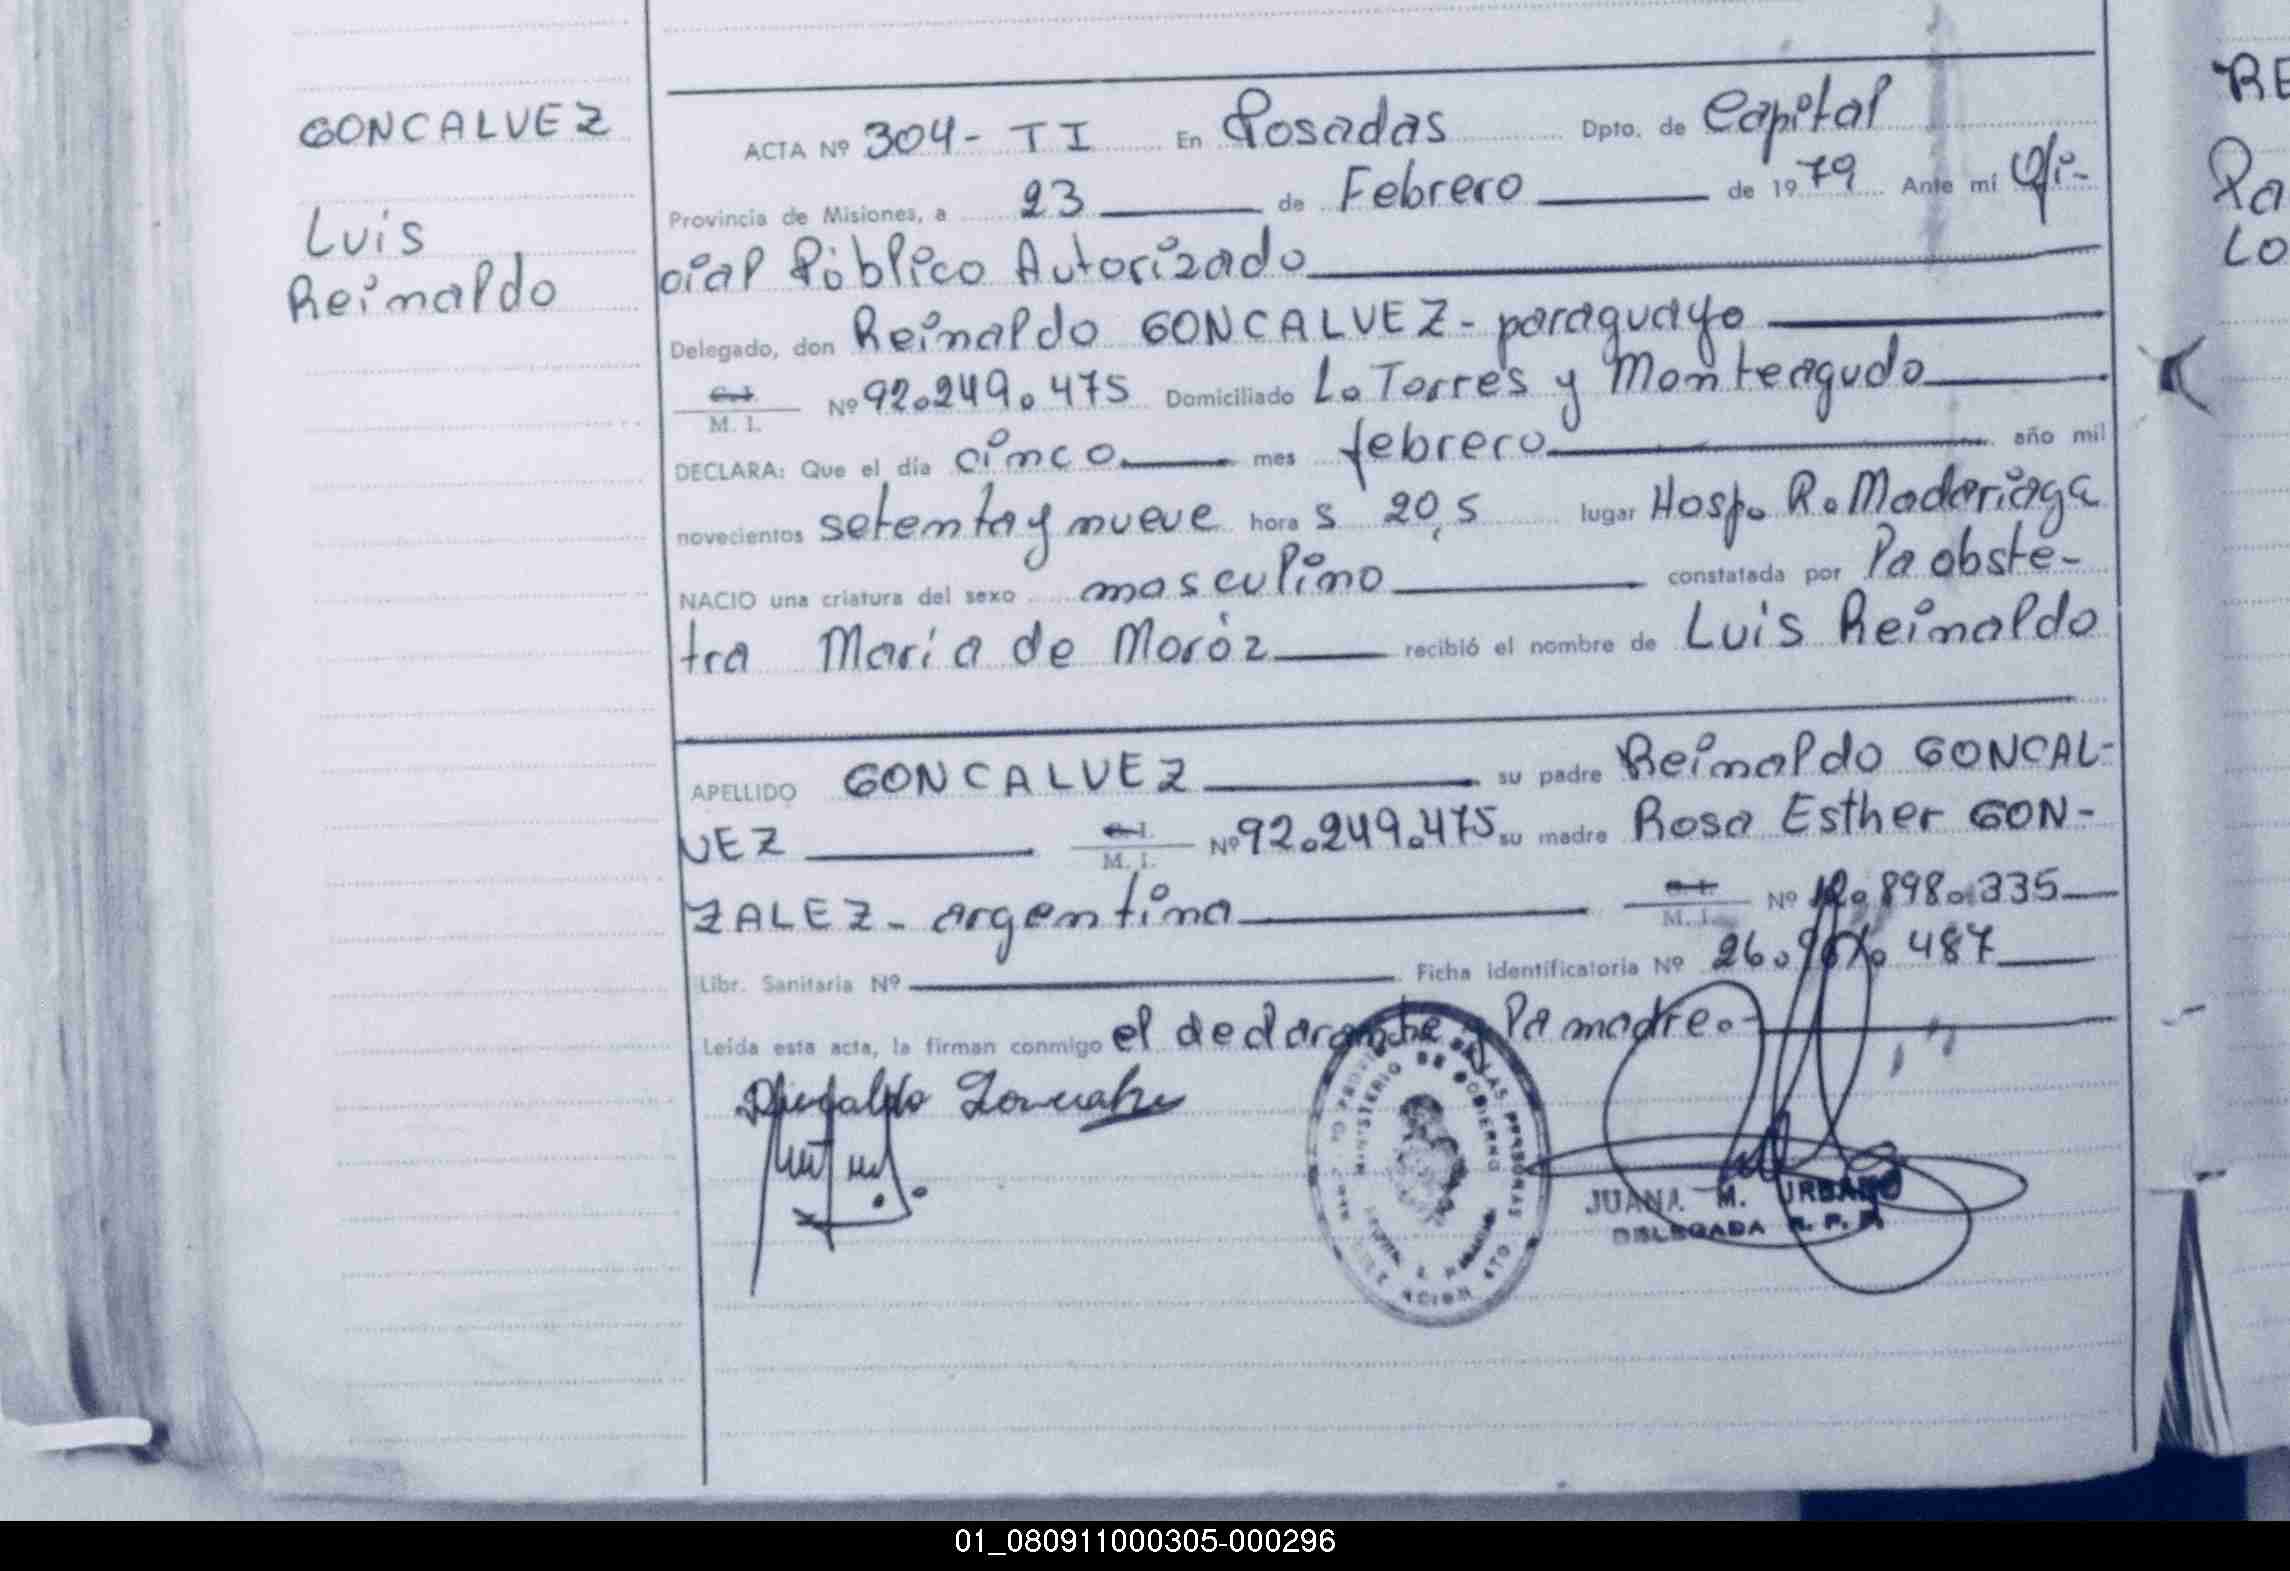 GONCALVEZ
Luis
Reinaldo
ACTA Nº 304- T I En Posadas Dpto. de Capital
Provincia de Misiones, a 23 de Febrero de 1979 Ante mí Ofi-
cial Público Autorizado
Delegado, don Reinaldo GONCALVEZ - paraguayo
C.I. M. I. Nº 92.249.475 Domiciliado L. Torres y Monteagudo
DECLARA: Que el día cinco mes febrero año mil
novecientos setenta y nueve hora s 20,5 lugar Hosp. R. Madariaga
NACIO una criatura del sexo masculino constatada por la obste-
tra María de Moróz recibió el nombre de Luis Reinaldo
APELLIDO GONCALVEZ su padre Reinaldo GONCAL-
VEZ C.I. M. I. Nº 92.249.475 su madre Rosa Esther GON-
ZALEZ - argentina C.I. M. I. Nº 12.898.335
Libr. Sanitaria Nº Ficha identificatoria Nº 26. 487
Leída esta acta, la firman conmigo el declarante y la madre.-
MINISTERIO DE GOBIERNO
LAS PERSONAS
JUANA M. URBANO
DELEGADA R. P. P.
RE
Pa
Lo
01_080911000305-000296